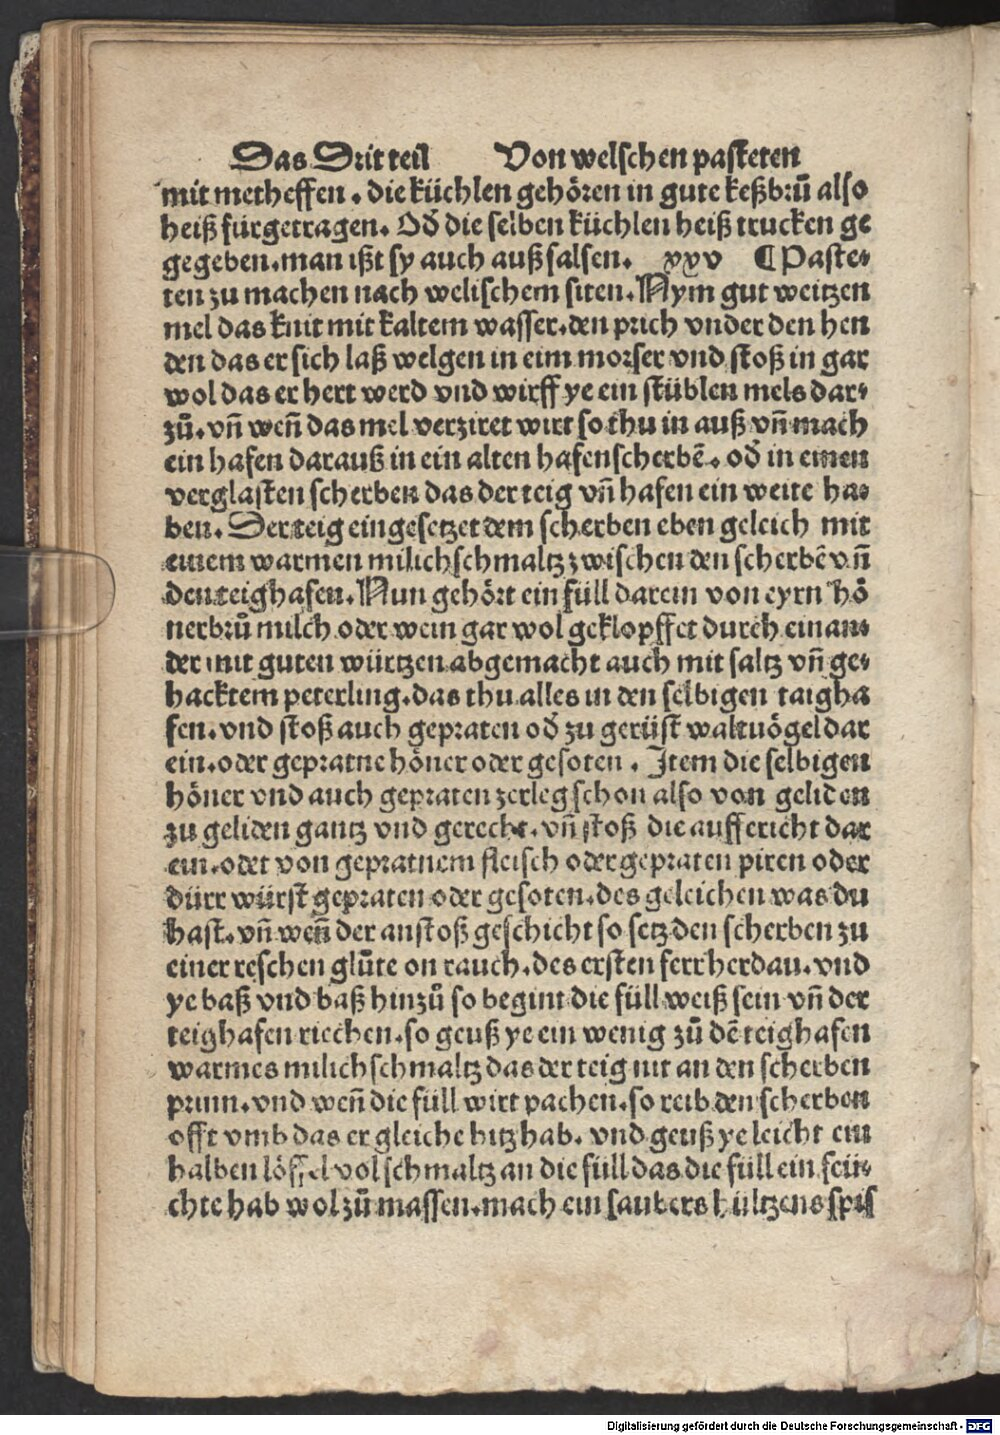 Das Drit teil Von welschen pasteten
mit metheffen. die küchlen gehören in gute keßbrů also
heiß fürgetragen. Od die selben küchlen heiß trucken ge
gegeben. man ißt sy auch auß salsen. xxv ¶ Paste⸗
ten zu machen nach welischem siten. Nym gut weitzen
mel das knit mit kaltem wasser. den prich vnder den hen
den das er sich laß welgen in eim morser vnd stoß in gar
wol das er hert werd vnd wirff ye ein stüblen mels dar⸗
zů. vñ weñ das mel verziret wirt so thu in auß vñ mach
ein hafen darauß in ein alten hafenscherbē. od in einen
verglasten scherben das der teig vñ hafen ein weite ha⸗
ben. Der teig eingesetzet dem scherben eben geleich mit
einem warmen milichschmaltz zwischen den scherbē vñ
den teighafen. Nun gehört ein füll darein von eyrn hö
nerbrů milch oder wein gar wol geklopffet durch einan⸗
der mit guten würtzen abgemacht auch mit saltz vñ ge⸗
hacktem peterling. das thu alles in den selbigen taigha
fen. vnd stoß auch gepraten od zu gerüst waltuögel dar
ein. oder gepratne höner oder gesoten. Item die selbigen
höner vnd auch gepraten zerleg schon also von geliden
zu geliden gantz vnd gerecht. vñ stoß die auffericht dar
ein. oder von gepratnem fleisch oder gepraten piren oder
dürr würst gepraten oder gesoten. des geleichen was du
hast. vñ weñ der anstoß geschicht so setz den scherben zu
einer reschen glůte on rauch. des ersten ferr herdau. vnd
ye baß vnd baß hinzů so begint die füll weiß sein vñ der
teighafen riechen. so geuß ye ein wenig zů dē teighafen
warmes milichschmaltz das der teig nit an den scherben
prinn. vnd weñ die füll wirt pachen. so reib den scherben
offt vmb das er gleiche hitz hab. vnd geuß ye leicht ein
halben löffel vol schmaltz an die füll das die füll ein feü⸗
chte hab wol zů massen. mach ein saubers hültzens spis
Digitalisierung gefördert durch die Deutsche Forschungsgemeinschaft - DFG